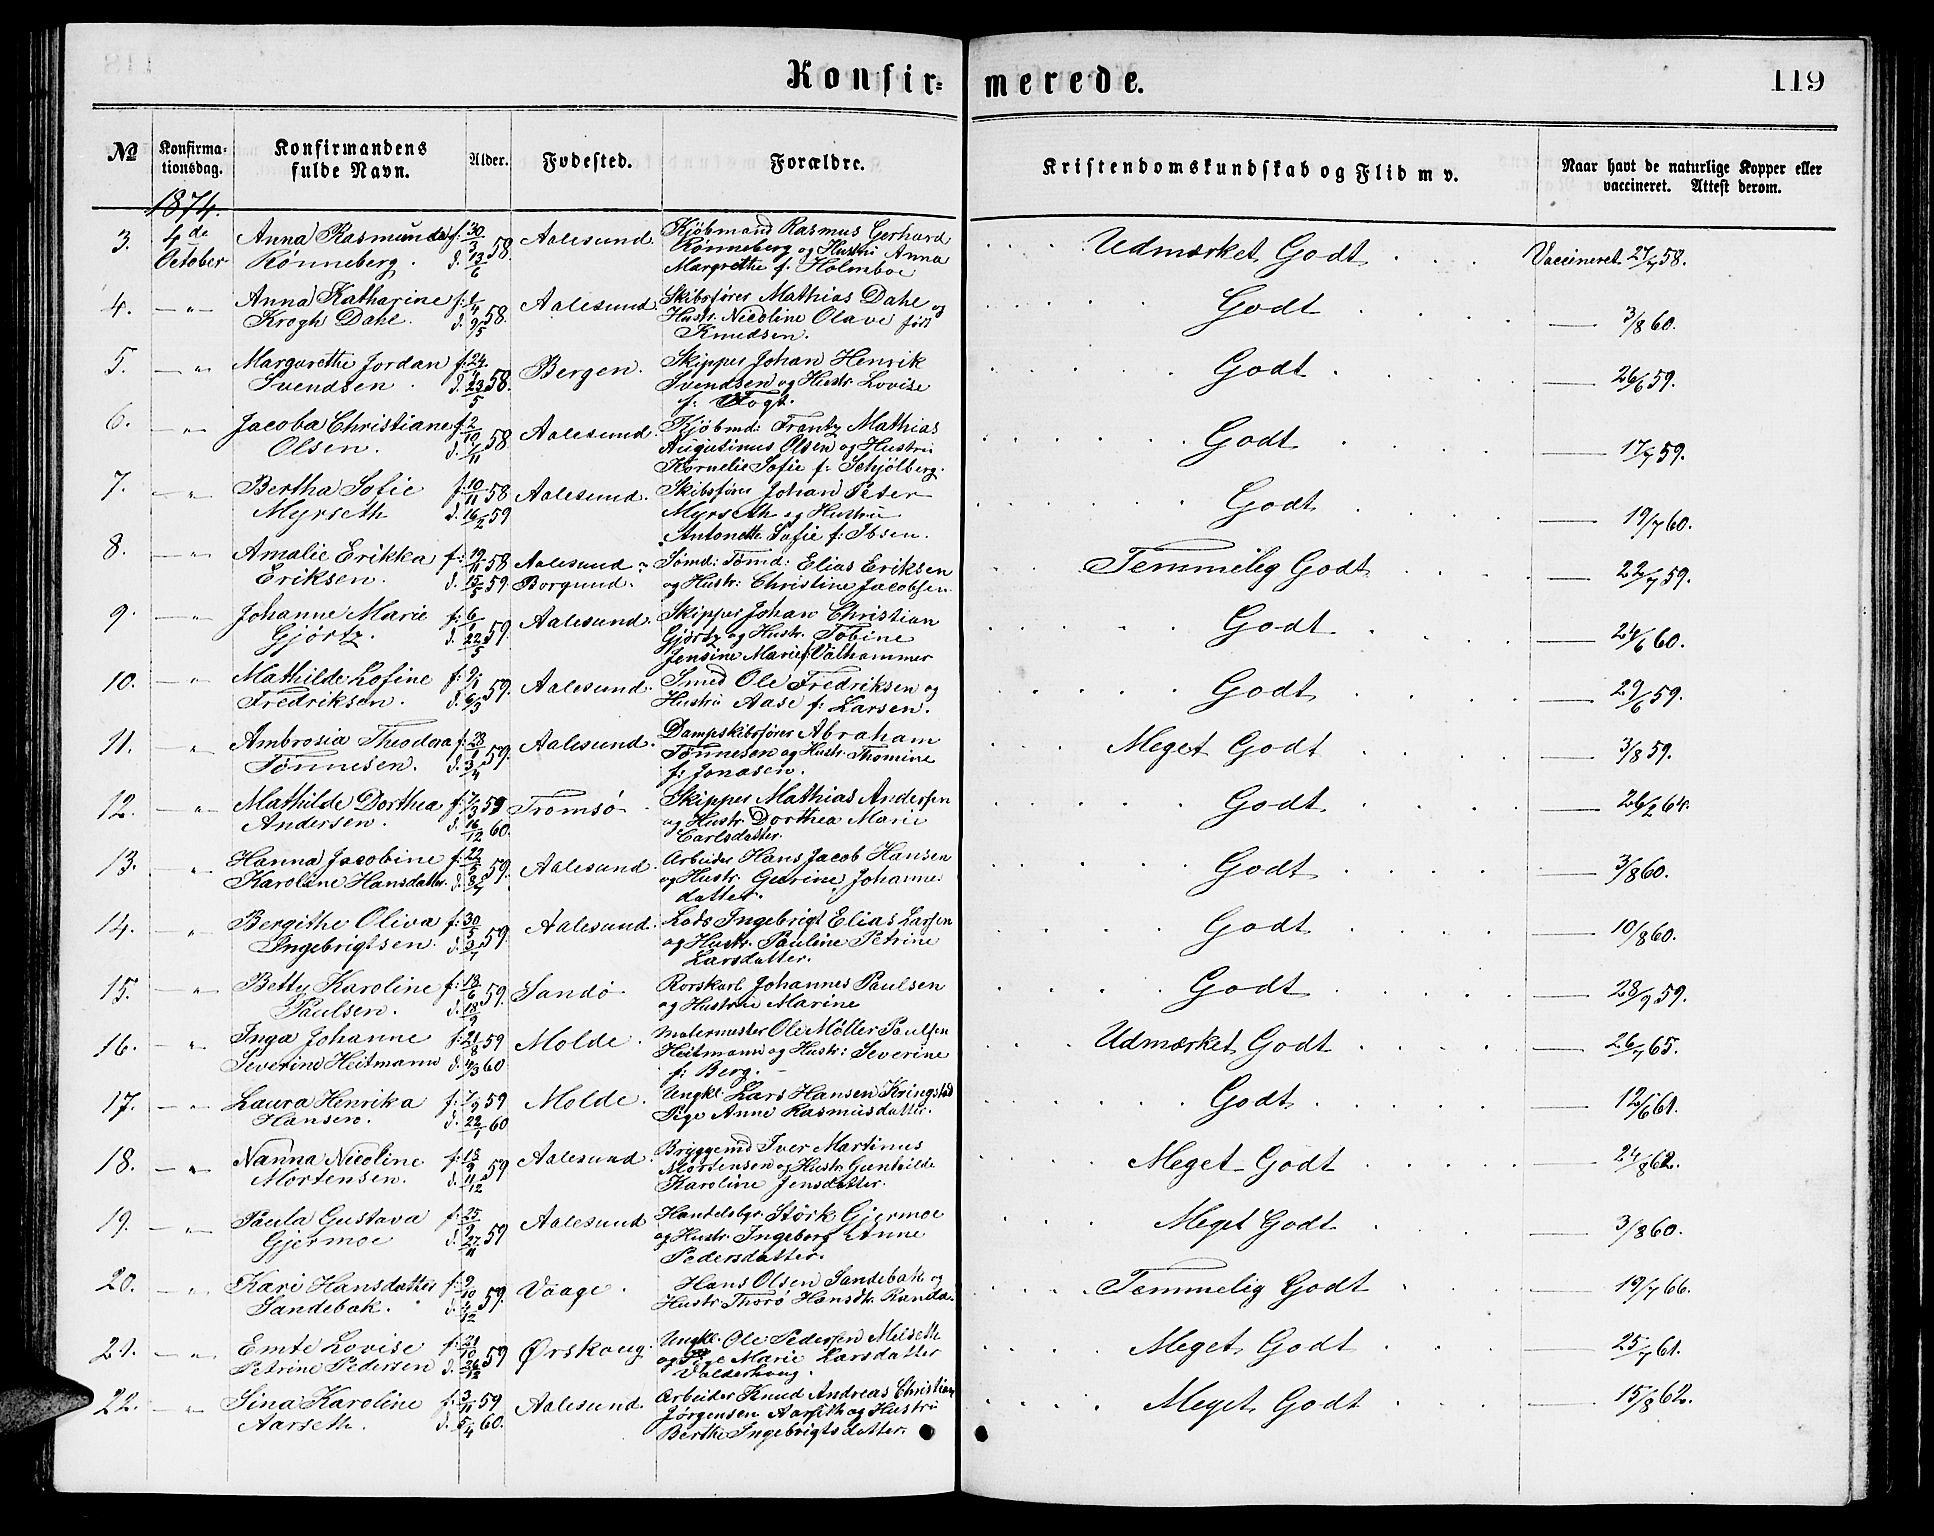 Konfir=
merede.
119
No
Konfirma-
tionsdag.
Konfirmandens
fulde Navn.
Alder.
Fødested.
Forældre.
Kristendomskundskab og Flid m v.
Naar havt de naturlige Kopper eller
vaccineret. Attest derom.
1874.
3. 4de October Anna Rasmunda Rønneberg. f: 30/3 d. 13/6 58. Aalesund. Kjøbmand Rasmus Gerhard
Rønneberg og Hustru Anna
Margrethe f. Holmboe
Udmærket Godt Vaccineret 27/7 58.
4. — „ — Anna Katharine Krogh Dahl. 58. Aalesund. Skibsfører Mathias Dahl og
Hustr. Nicoline Olave født
Knudsen.
Godt — 3/8 60.
5. — „ Margarethe Jordan Svendsen 58. Bergen. Skipper Johan Henrik
Svendsen og Hustr. Lovise
f. Vogt.
Godt — 26/6 59.
6. — „ Jacoba Christiane Olsen. f. 2/10 58 Aalesund. Kjøbmd: Frantz Mathias
Augustinus Olsen og Hustru
Kornelie Sofie f. Schjølberg.
Godt — 17/7 59.
7. — „ Bertha Sofie Myrseth f. 10/11 58 d. 16/2 59 Aalesund. Skibsfører Johan Peter
Myrseth og Hustru
Antonette Sofie f. Ibsen.
Godt — 19/7 60.
8. — „ — Amalie Erikka Eriksen. f. 19/11 58 d. 15/5 59 Aalesund
Borgund. Tømd: Elias Eriksen
og Hustr: Christine Jacobsen
Temmelig Godt — 22/7 59.
9. — „ Johanne Marie Gjørtz. d. 22/5 59. Aalesund. Skipper Johan Christian
Gjørtz og Hustr. Tobine
Jensine Marie f. Valhammer
Godt — 24/6 60.
10. — „ Mathilde Lofine Fredriksen. d. 6/3 59. Aalesund. Smed Ole Fredriksen og
Hustru Aase f. Larsen.
Godt — 29/6 59.
11. „ Ambrosia Theodora Tønnesen. d. 3/4 59. Aalesund. Dampskibsfører Abraham
Tønnesen og Hustr. Thomine
f: Jonasen.
Meget Godt — 3/8 59.
12. — „ Mathilde Dorthea Andersen. 59 d. 16/12 60. Tromsø Skipper Mathias Andersen
og Hustr. Dorthea Marie
Carlsdatter.
Godt — 26/2 64.
13. — „ Hanna Jacobine Karoline Hansdatter. 59. Aalesund. Arbeider Hans Jacob Hansen
og Hustr. Gurine Johannes
datter.
Godt — 3/8 60.
14. — „ Bergithe Oliva Ingebrigtsen. f. 30/5 d. 3/7 59. Aalesund. Lods Ingebrigt Elias Larsen
og Hustr. Pauline Petrine
Larsdatter.
Godt — 10/8 60.
15. — „ Betty Karoline Paulsen. f. 13/6 d. 18/9 59. Sandø Rorskarl Johannes Paulsen
og Hustru Marine
Godt — 28/9 59.
16. — „ Inga Johanne Severine Heitmann f. 21/8 59 d. 4/3 60 Molde. Malermester Ole Møller Paulsen
Heitmann og Hustr: Severine
f. Berg.
Udmærket Godt — 26/7 65.
17. — „ Laura Henrika Hansen. 59 d. 22/1 60 Molde. Ungkl. Lars Hansen Kringstad
Pige Anne Rasmusdatter.
Godt — 12/6 61.
18. — „ Nanna Nicoline Mortensen. f. 13/9 d. 11/12 59 Aalesund. Bryggemd Iver Martinus
Mortensen og Hustr. Gunhilde
Karoline Jensdatter.
Meget Godt — 24/8 62.
19. — „ — Paula Gustava Gjermoe f. 25/9 d. 27/11 59 Aalesund Handelsbgr. Størk Gjermoe
og Hustr. Ingeborg Anne
Pedersdatter.
Meget Godt — 3/8 60.
20. — „ Kari Hansdatter Sandebak. f. 9/10 59. Vaage. Hans Olsen Sandebak og
Hustr. Thorø Hansdtr. Randa.
Temmelig Godt — 19/7 66.
21. — „ Emte Lovise Petrine Pedersen f. 21/10 d. 26/12 59 Ørskoug. Ungkl. Ole Pedersen Melseth
og Pige Marie Larsdatter
Valderhoug.
Meget Godt — 25/7 61.
22. — „ Sina Karoline Aarseth. f. 3/11 59 d. 5/4 60. Aalesund. Arbeider Knud Andreas Christian
Jørgensen Aarseth og Hustru
Berthe Ingebrigtsdatter.
Meget Godt — 15/8 62.